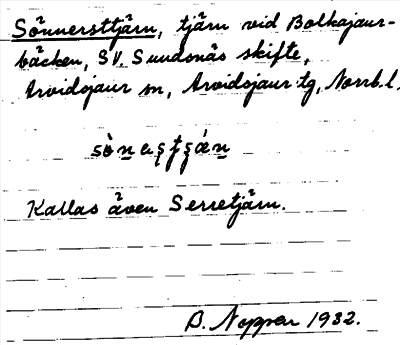 Sönnersttjärn, tjärn vid Bolkajaur-
bäcken, SV. Sundsnäs skifte,
Arvidsjaur sn, Arvidsjaur tg, Norrb. l.
Kallas även Serretjärn.
B. 1932.